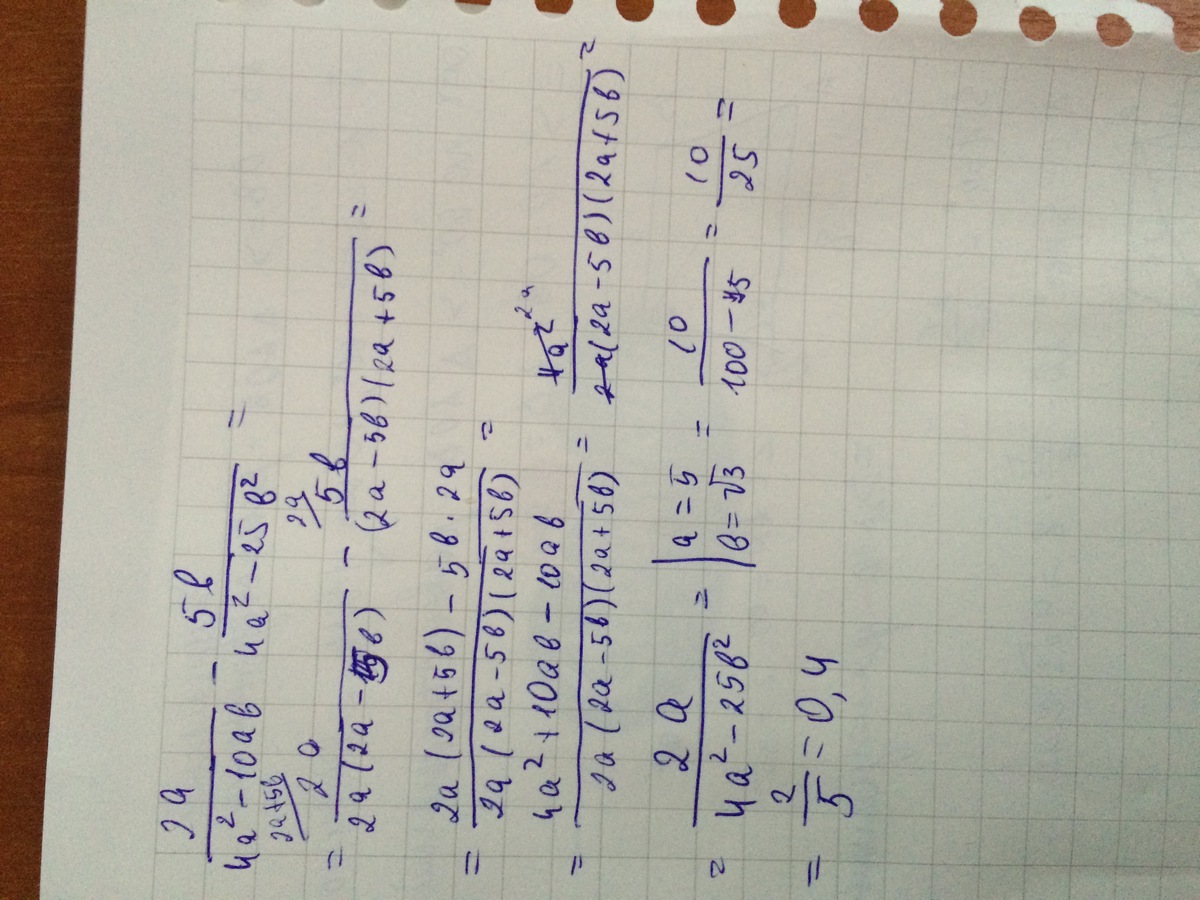 2a/(4a² - 10ab) - 5b/(4a² - 25b²) =
= 2a/(2a(2a - 5b)) - 5b/((2a - 5b)(2a + 5b)) =
= (2a(2a+5b) - 5b · 2a)/(2a(2a - 5b)(2a+5b)) =
= (4a² + 10ab - 10ab)/(2a(2a - 5b)(2a+5b)) = 4a²/(2a(2a - 5b)(2a+5b)) =
= 2a/(4a² - 25b²) = | a = 5 b = √3 | = 10/(100 - 75) = 10/25 =
= 2/5 = 0,4